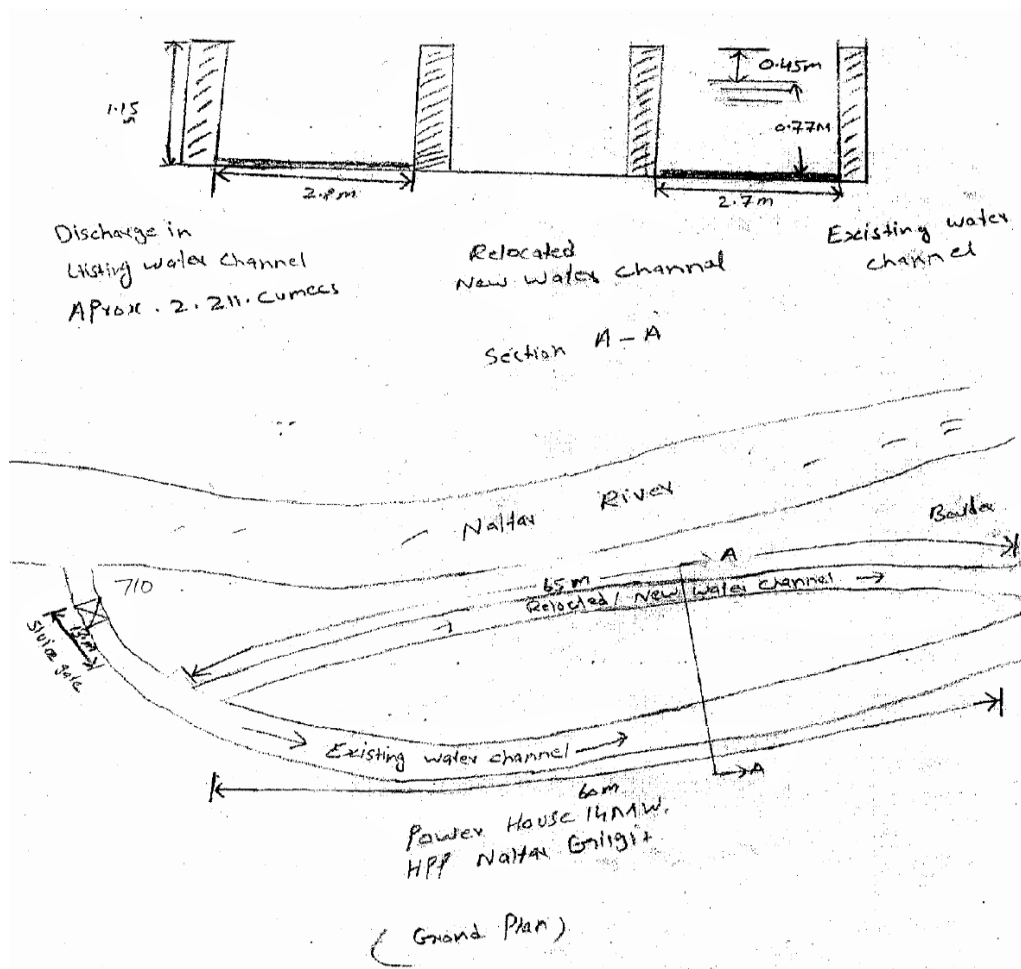 0.45m
1.15
m
0.77m
2.7m
Discharge in
Existing water channel
AProx. 2.211. Cumecs
Relocated
New water channel
Existing water
channel
Section A-A
Naltar River
Boulder
A
710
65m
Relocted/New water channel
Sluice gate
Existing water channel
A
60m
Power House 14MW.
HPP Naltar Gilgit
(Grand Plan)